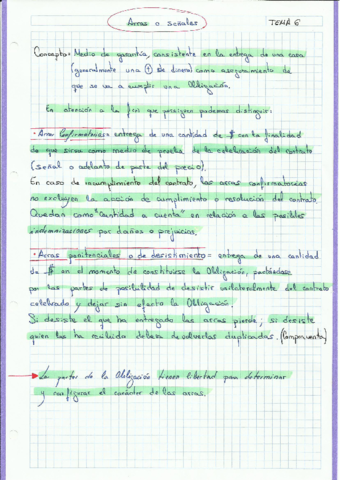 Arras o señales
TEMA 6
Concepto= Medio de garantía, consistente en la entrega de una cosa
(generalmente una de dinero) como aseguramiento de
que se va a cumplir una Obligación.
En atención a la fin que persiguen podemos distinguir:
· Arras Confirmatorias= entrega de una cantidad de $ con la finalidad
de que sirva como medio de prueba de la celebración del contrato
(señal o adelanto de parte del precio).
En caso de incumplimiento del contrato, las arras confirmatorias
no excluyen la acción de cumplimiento o resolución del contrato.
Quedan como "cantidad a cuenta" en relación a las posibles
indemnizaciones por daños o prejuicios.
· Arras penitenciales o de desistimiento= entrega de una cantidad
de $ en el momento de constituirse la Obligación, pactándose
por las partes la posibilidad de desistir unilateralmente del contrato
celebrado y dejar sin efecto la Obligación.
Si desiste el que ha entregado las arras pierde; si desiste
quien las ha recibido deberá devolverlas duplicadas. (Compraventa)
Las partes de la Obligación tienen libertad para determinar
y configurar el carácter de las arras.